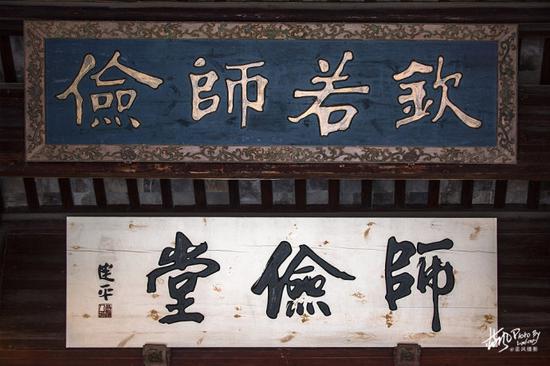 欽若師儉
師儉堂
Photo By